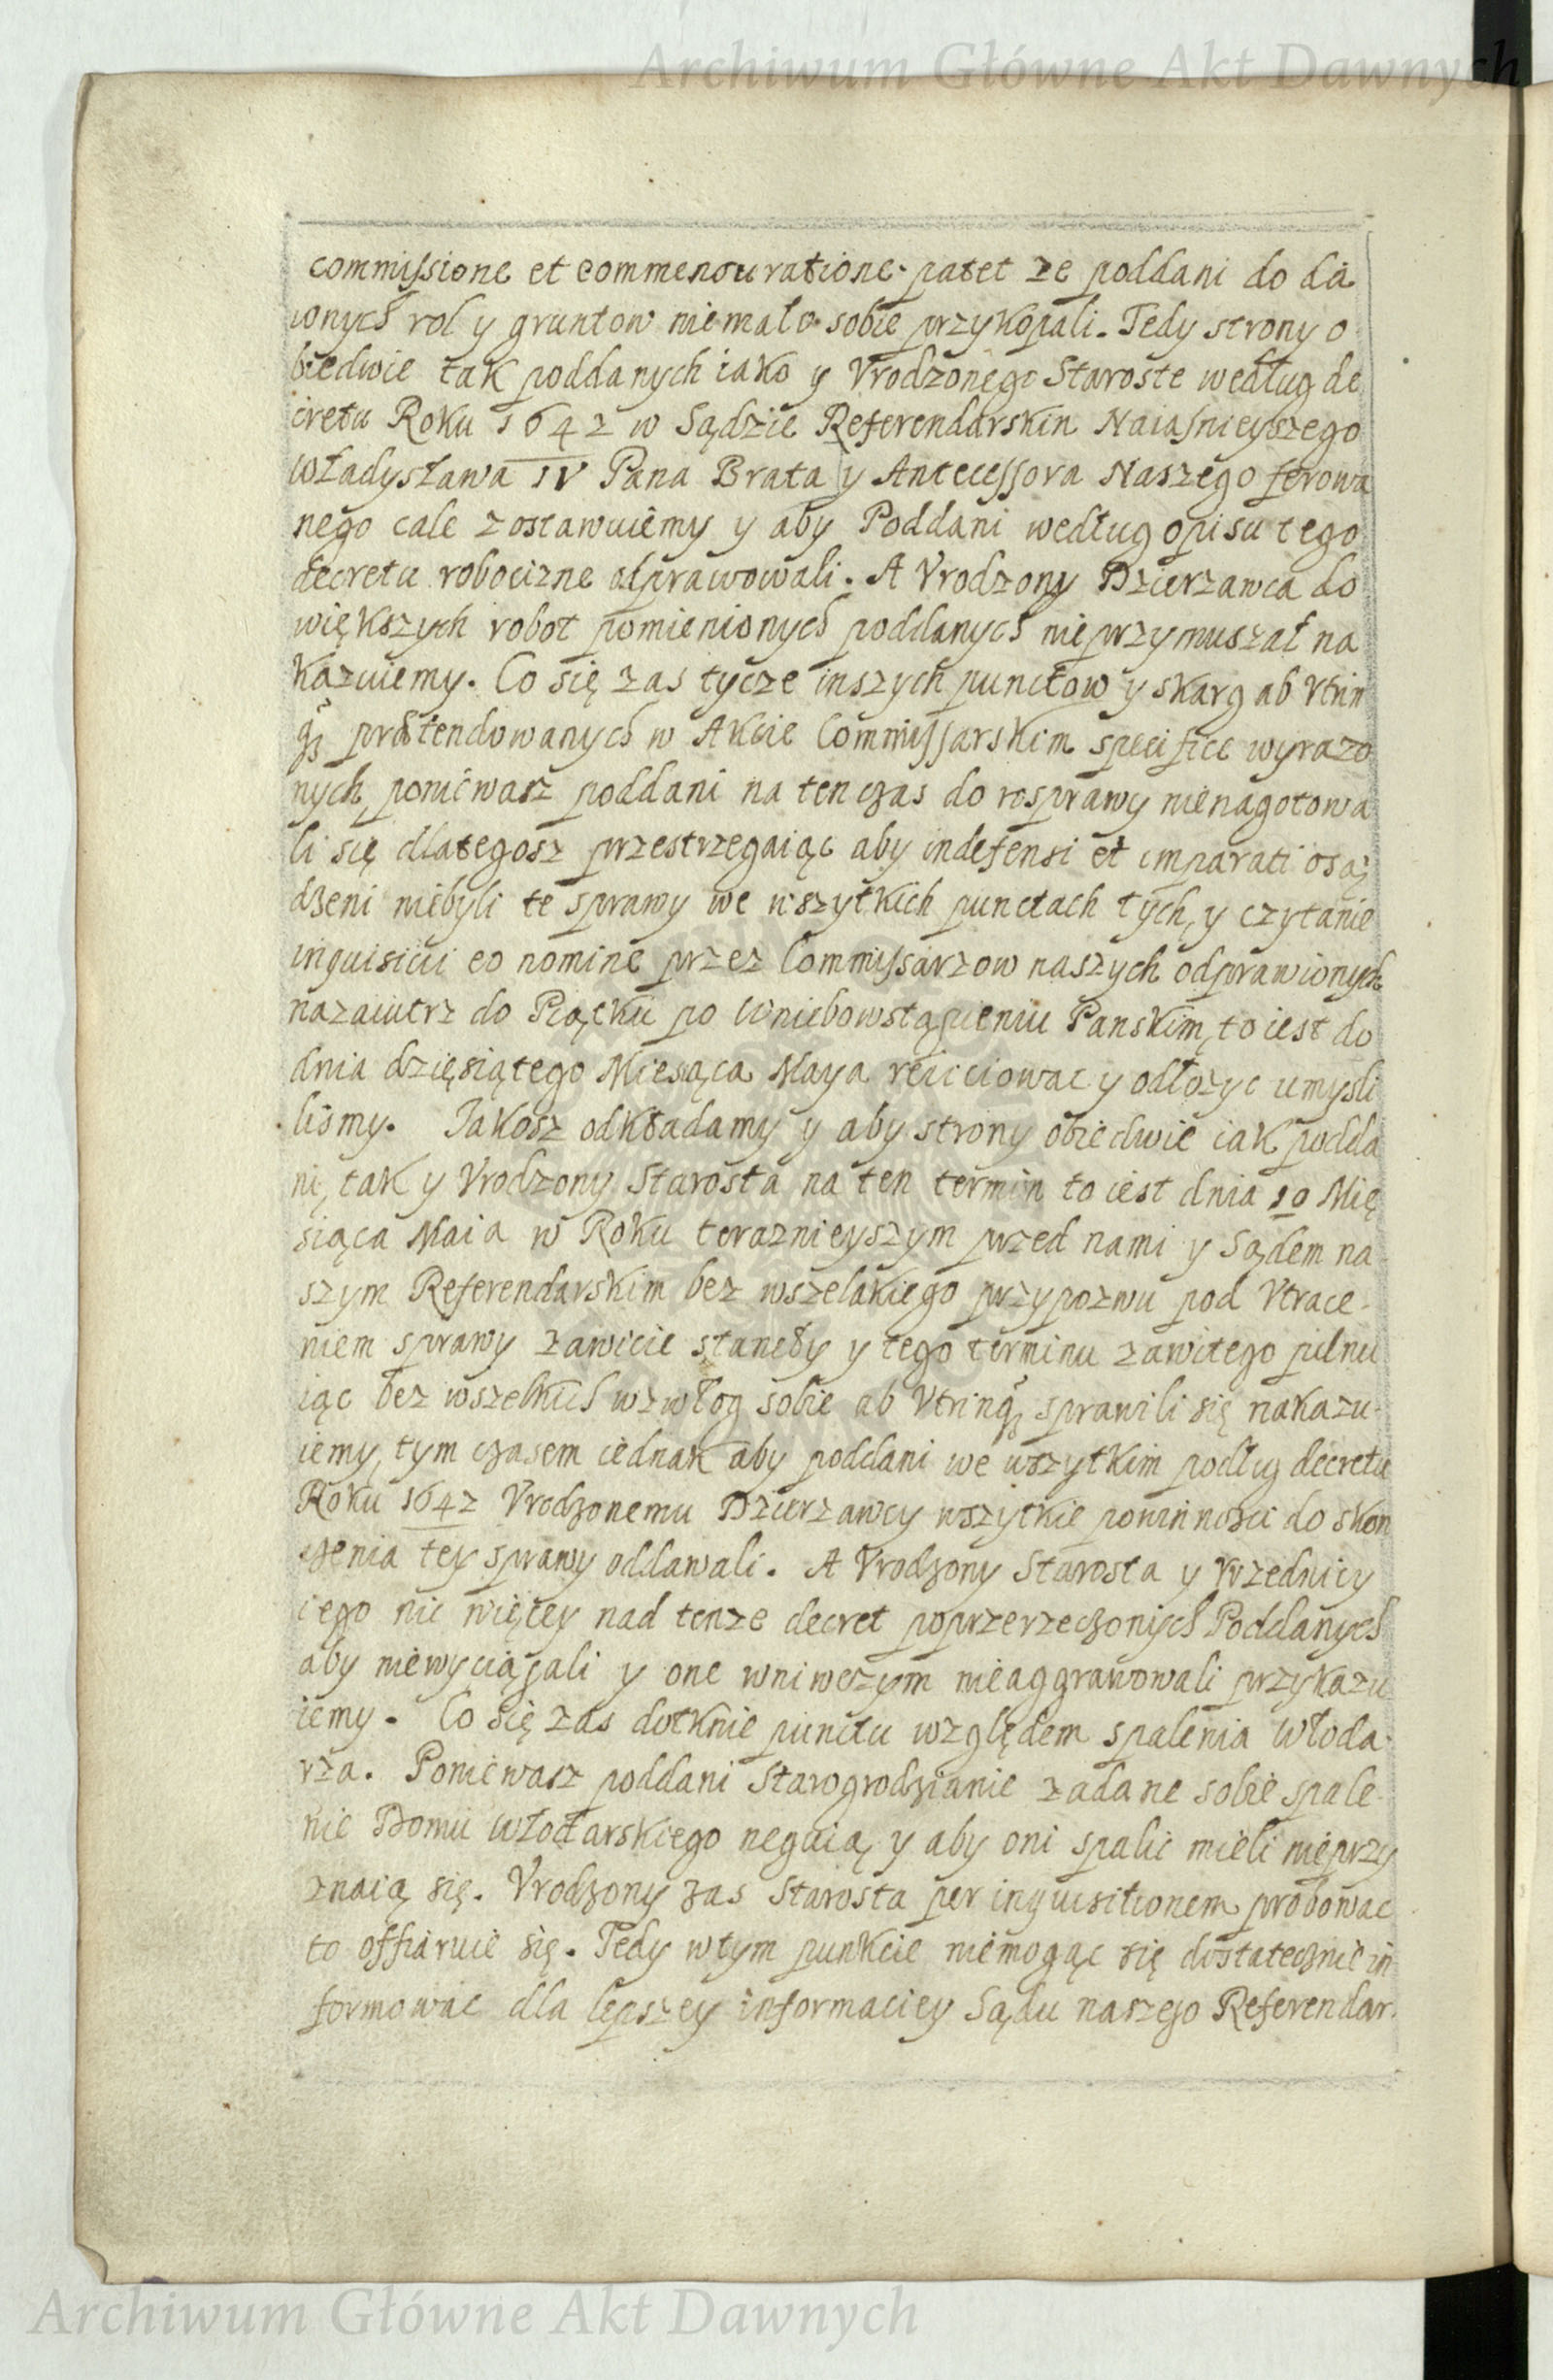 Archiwum Główne Akt Dawnych
commissione et commensuratione patet ze poddani do da
wnych rol y gruntow niemało sobie przykopali. Tedy strony o
biedwie tak poddanych iako y Vrodzonego Staroste według de
cretu Roku 1642 w Sądzie Referendarskim Naiasnieyszego
Władysława IV Pana Brata y Antecessora Naszego ferowa
nego cale zostawuiemy y aby Poddani według opisu tego
decretu robocizne odprawowali. A Vrodzony Dzierzawca do
większych robot pomienionych poddanych nieprzymuszał na
kazuiemy. Co się zas tycze inszych punctow y skarg ab Vtrin
q3 prætendowanych w Akcie Commissarskim specifice wyrazo
nych, poniewasz poddani na ten czas do rosprawy nienagotowa
li się dlategosz przestrzegaiąc aby indefensi et imparati osą
dzeni niebyli te sprawy we wszytkich punctach tych, y czytanie
inquisicii eo nomine przez Commissarzow naszych odprawionych
nazaiutrz do Piątku po Wniebowstąpieniu Panskim, to iest do
dnia dziesiątego Miesąca Maya reiiciowac y odłozyc umysli
lismy. Jakosz odkładamy y aby strony obiedwie iak podda
ni, tak y Vrodzony Starosta na ten termin to iest dnia 10 Mie
siąca Maia w Roku teraznieyszym przed nami y Sądem na
szym Referendarskim bez wszelakiego przypozwu pod Vtrace-
niem sprawy zawicie staneły y tego terminu zawitego pilnu
iąc bez wszelkich wzwłog sobie ab Vtrinq3 sprawili się nakazu-
iemy, tym czasem iednak aby poddani we wszytkim podług decretu
Roku 1642 Vrodzonemu Dzierzawcy wszytkie powinnosci do skon
czenia tey sprawy oddawali. A Vrodzony Starosta y Vrzednicy
iego nic więcey nad tenze decret poprzerzeczonych Poddanych
aby niewyciągali y one wniwczym nieaggrawowali przykazu
iemy. Co się zas dotknie punctu względem spalenia Włoda-
rza. Poniewasz poddani Starogrodzianie zadane sobie spale-
nie Domu włodarskiego neguią y aby oni spalic mieli nieprzy
znaią się. Vrodzony zas Starosta per inquisitionem probowac
to offiaruie się. Tedy wtym punkcie niemogąc się dostatecznie in
formowac dla lepszey informaciey Sądu naszego Referendar-
Archiwum Główne Akt Dawnych